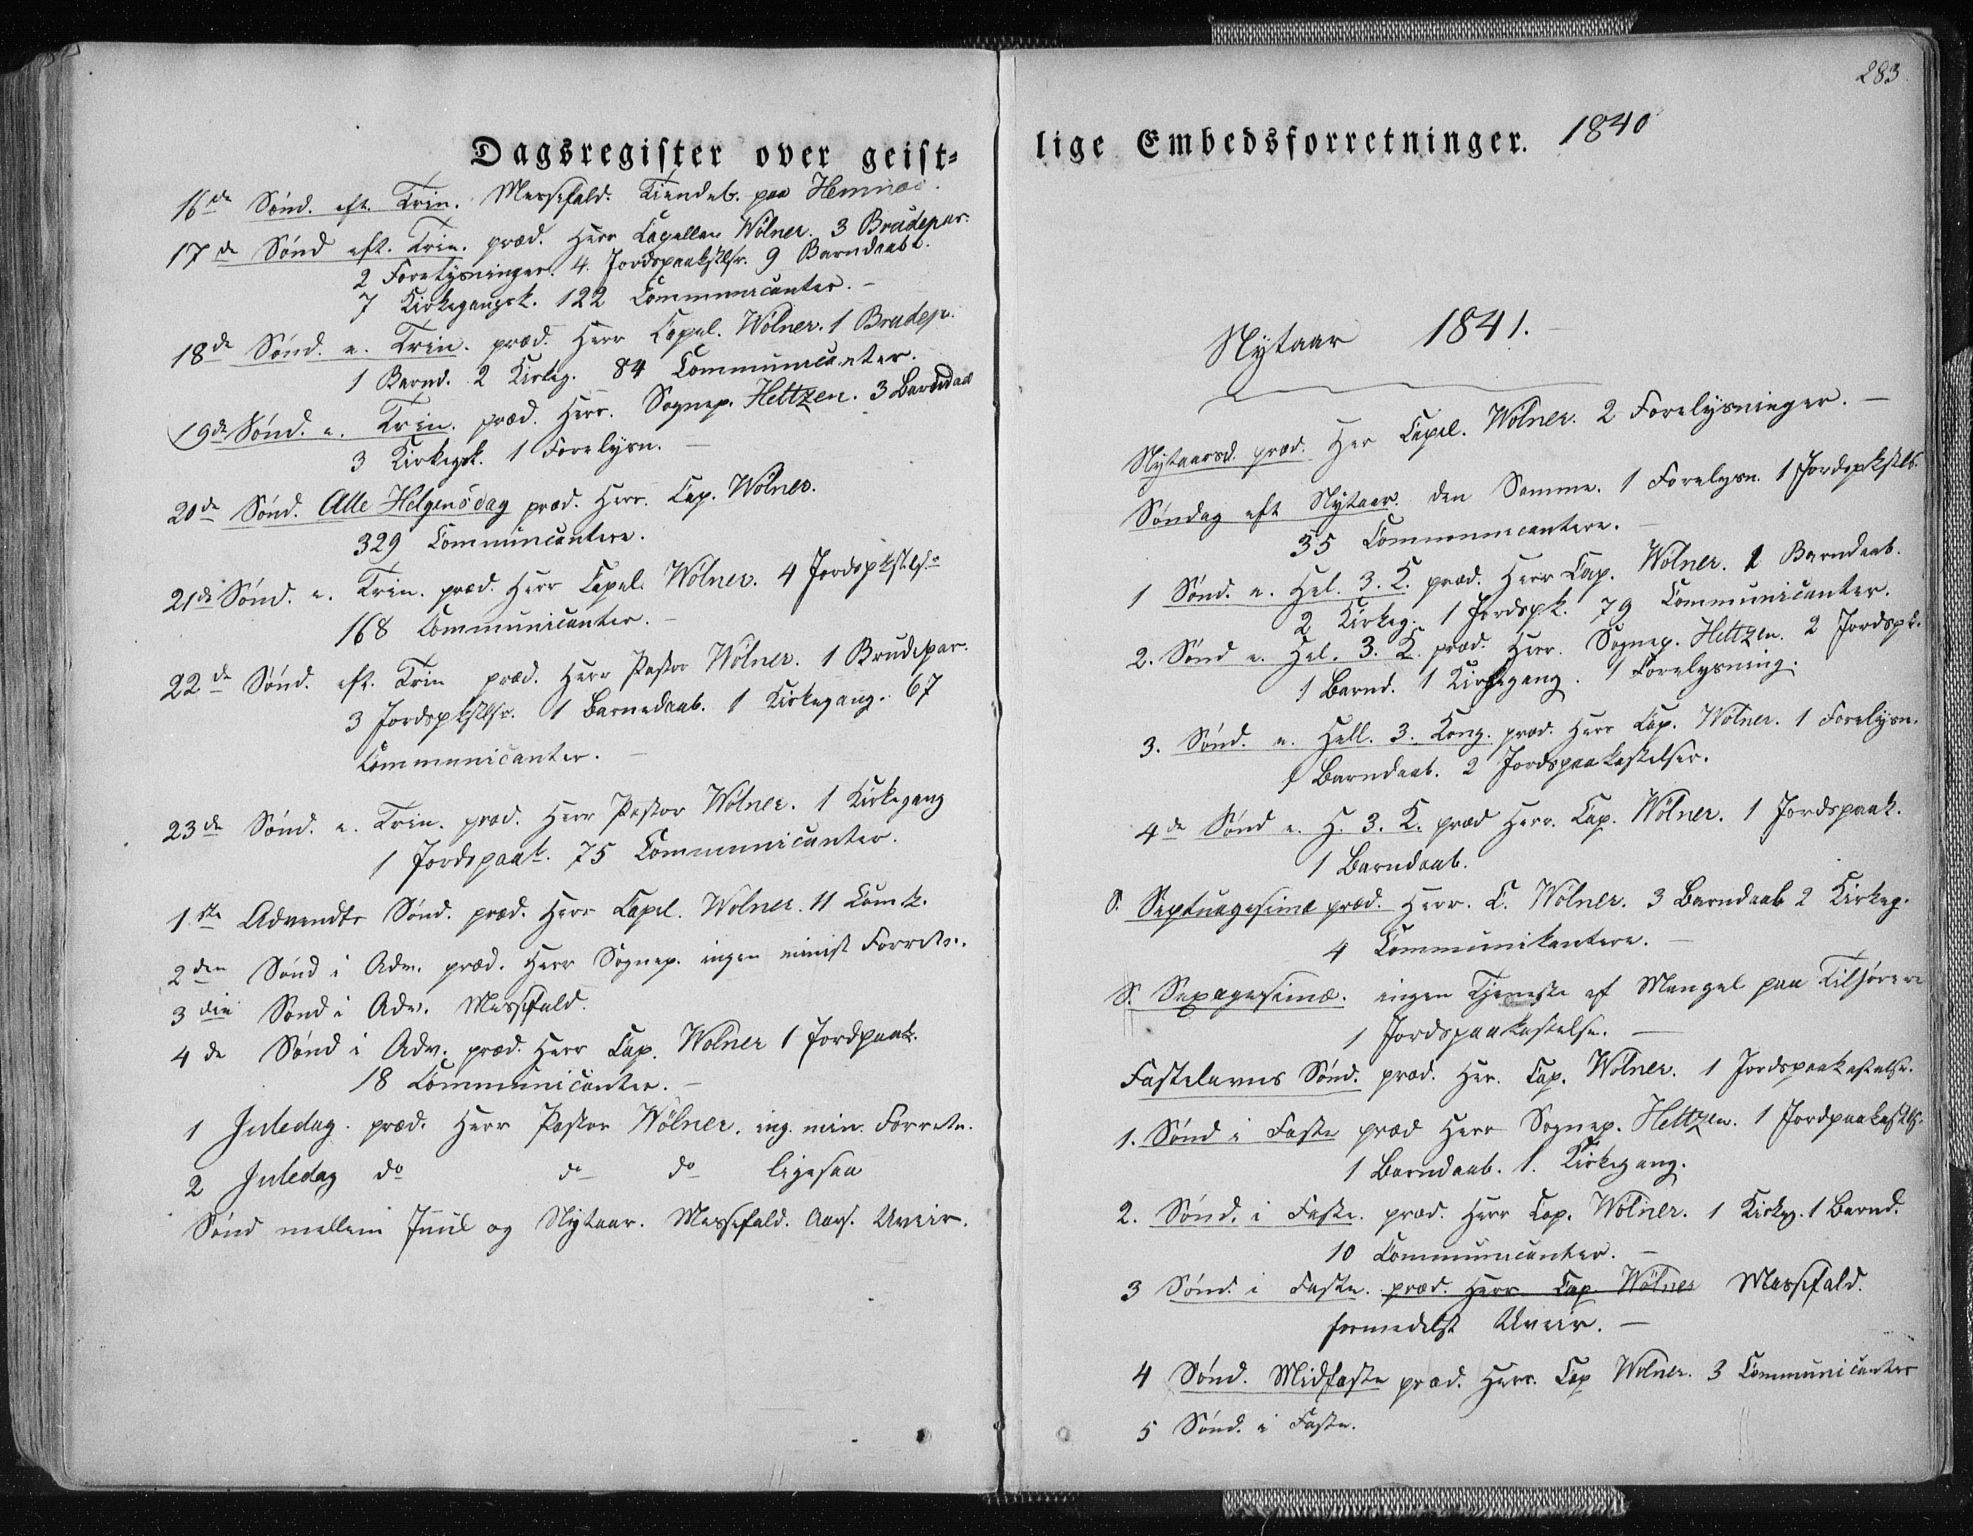 Dagsregister over geist-
16de Sønd. eft. Trin. Messefald. Tiendeb. paa Hemnæs.
17de Sønd eft. Trin. præd. Herr Capellan Wølner. 3 Brudepar.
2 Forelysninger. 4. Jordspaakstlsr. 9 Barndaab.
7 Kirkegangsk. 122 Communicanter. –
18de Sønd. e. Trin. præd. Herr Capel. Wølner. 1 Brudep.
1 Barnd. 2 Kirkeg. 84 Communicanter.
19de Sønd. e. Trin. præd. Herr. Sognep. Heltzen. 3 Barndaab
3 Kirkegk. 1 Forelysn. –
20de Sønd. Alle Helgensdag præd. Herr. Cap. Wølner.
329 Communicantere.
21de Sønd. e. Trin. præd. Herr Capel. Wølner. 4 Jordspkstlsr
168 Communicanter. –
22de Sønd. eft. Trin præd. Herr Pastor Wølner. 1 Brudepar.
3 Jordspkstlsr. 1 Barnedaab. 1 Kirkegang. 67
Communicanter. –
23de Sønd. e. Trin. præd. Herr Pastor Wølner. 1 Kirkegang
1 Jordspaak. 75 Communicanter.
1ste Advendts Sønd. præd. Herr Capel. Wølner. 11 Comk.
2den Sønd i Adv. præd. Herr Sognep. ingen minist Forretn.
3die Sønd i Adv. Messefald.
4de Sønd i Adv. præd. Herr Cap. Wølner 1 Jordpaak.
18 Communicanter. –
1 Juledag. præd. Herr Pastor Wølner. ing. min. Forretn.
2 Juledag do do do ligesaa
Sønd mellem Juul og Nytaar. Messefald. Aars. Uveir.
283
lige Embedsforretninger. 1840
Nytaar 1841. –
Nytaarsd. præd. Her Capel. Wølner. 2 Forelysninger. –
Søndag eft Nytaar. den Samme. 1 Forelysn. 1 Jordspkstls.
35 Communicantere. –
1 Sønd. e. Hel. 3. K. præd. Herr Cap. Wølner. 1 Barndaab.
2 Kirkeg. 1 Jordspk. 79 Communicanter.
2. Sønd e. Hel. 3. K. præd. Herr. Sognep. Heltzen. 2 Jordspk.
1 Barnd. 1 Kirkegang. 1 Forelysning.
3. Sønd. e. Hell. 3. Kong. præd. Herr Cap. Wølner. 1 Forelysn.
1 Barndaab. 2 Jordspaakastelser.
4de Sønd e. H. 3. K. præd Herr. Cap. Wølner. 1 Jordspaak.
1 Barndaab.
S. Septuagesimæ præd. Herr. C. Wølner. 3 Barndaab 2 Kirkeg.
4 Communikantere. –
S. Sexagesimæ. ingen Tjeneste af Mangel paa Tilhørere
1 Jordspaakastelse. –
Fastelavns Sønd. præd. Her. Cap. Wølner. 1 Jordspaakastelse.
1. Sønd i Faste præd Herr Sognep. Heltzen. 1 Jordpaakastls.
1 Barndaab. 1. Kirkegang.
2. Sønd. i Faste. præd. Herr Cap. Wølner. 1 Kirkeg. 1 Barnd.
10 Communicanter. –
3 Sønd. i Faste. præd. Herr Cap Wølner Messefald.
formedelst Uveir. –
4 Sønd. Midfaste præd. Herr. Cap Wølner. 3 Communicanter
5 Sønd. i Faste.